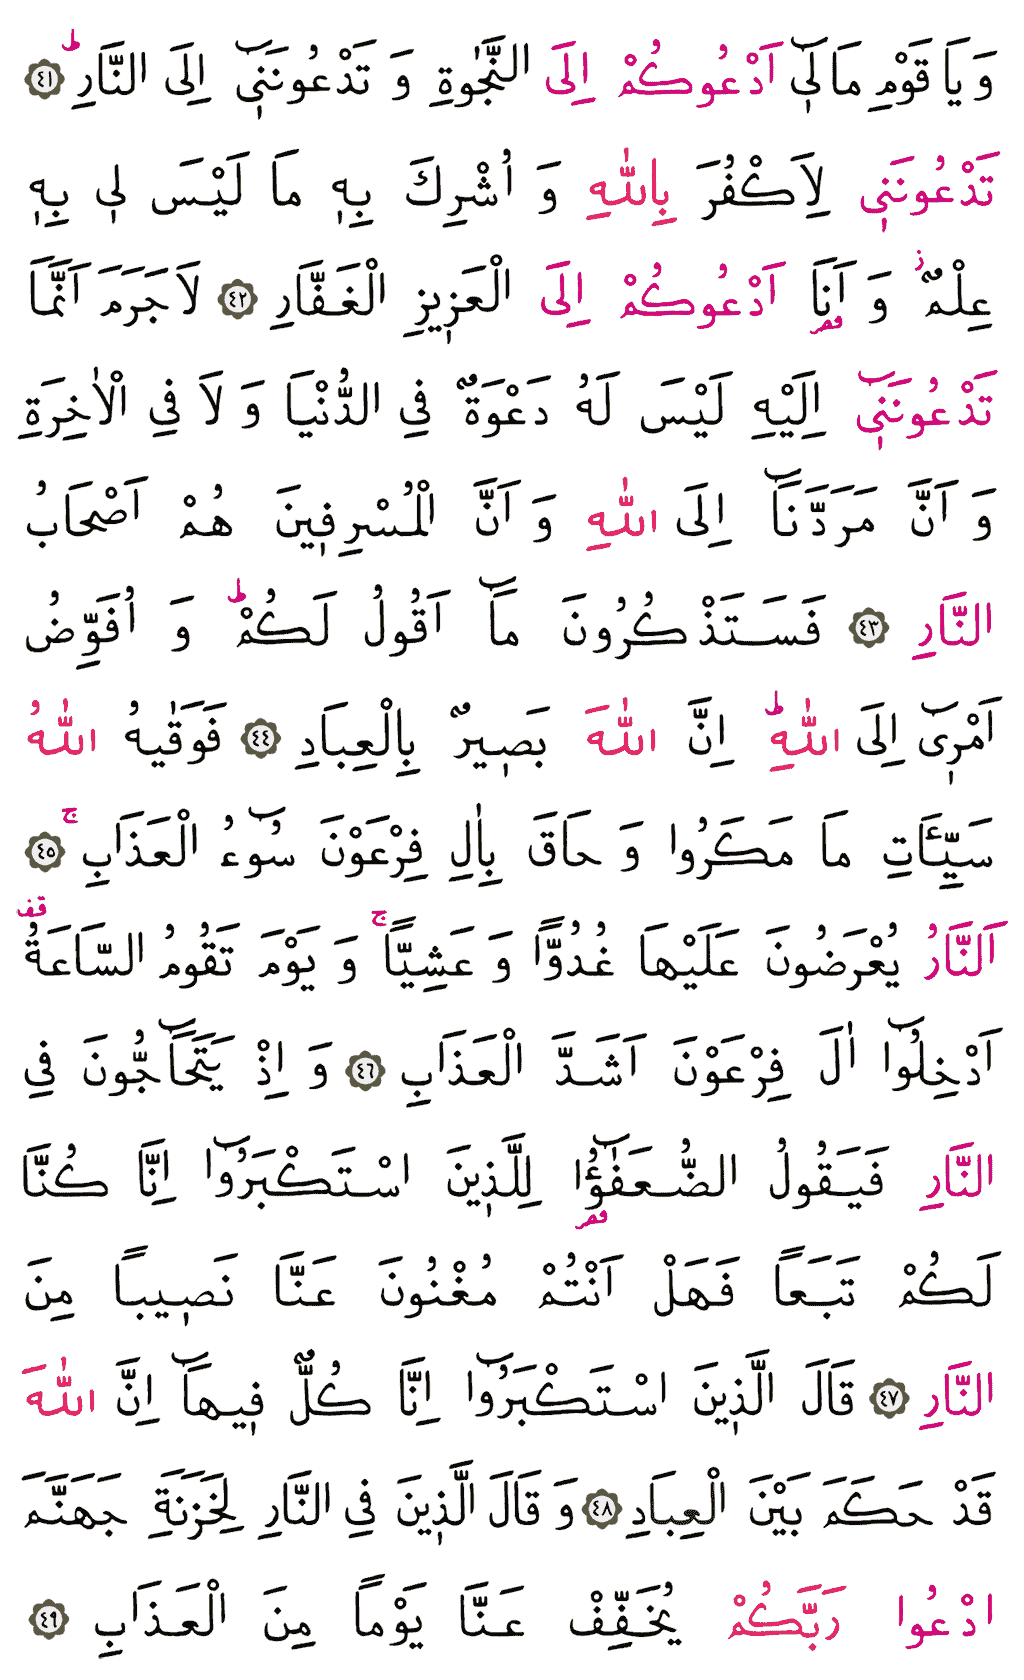 وَ يَا قَوْمِ مَا لِٓي اَدْعُوكُمْ اِلَى النَّجٰوةِ وَ تَدْعُونَنِٓي اِلَى النَّارِۜ ﴿٤١﴾
تَدْعُونَنِي لِاَكْفُرَ بِاللّٰهِ وَ اُشْرِكَ بِهِ مَا لَيْسَ لِي بِهِ
عِلْمٌۘ وَ اَنَا۬ اَدْعُوكُمْ اِلَى الْعَزِيزِ الْغَفَّارِ ﴿٤٢﴾ لَا جَرَمَ اَنَّمَا
تَدْعُونَنِٓي اِلَيْهِ لَيْسَ لَهُ دَعْوَةٌ فِي الدُّنْيَا وَ لَا فِي الْاٰخِرَةِ
وَ اَنَّ مَرَدَّنَٓا اِلَى اللّٰهِ وَ اَنَّ الْمُسْرِفِينَ هُمْ اَصْحَابُ
النَّارِ ﴿٤٣﴾ فَسَتَذْكُرُونَ مَٓا اَقُولُ لَكُمْۜ وَ اُفَوِّضُ
اَمْرِٓي اِلَى اللّٰهِۜ اِنَّ اللّٰهَ بَصِيرٌ بِالْعِبَادِ ﴿٤٤﴾ فَوَقٰيهُ اللّٰهُ
سَيِّـَٔاتِ مَا مَكَرُوا وَ حَاقَ بِاٰلِ فِرْعَوْنَ سُٓوءُ الْعَذَابِۚ ﴿٤٥﴾
اَلنَّارُ يُعْرَضُونَ عَلَيْهَا غُدُوًّا وَ عَشِيًّاۚ وَ يَوْمَ تَقُومُ السَّاعَةُ۠ قف
اَدْخِلُٓوا اٰلَ فِرْعَوْنَ اَشَدَّ الْعَذَابِ ﴿٤٦﴾ وَ اِذْ يَتَحَٓاجُّونَ فِي
النَّارِ فَيَقُولُ الضُّعَفٰٓؤُ۬ا لِلَّذِينَ اسْتَكْبَرُٓوا اِنَّا كُنَّا
لَكُمْ تَبَعاً فَهَلْ اَنْتُمْ مُغْنُونَ عَنَّا نَصِيباً مِنَ
النَّارِ ﴿٤٧﴾ قَالَ الَّذِينَ اسْتَكْبَرُٓوا اِنَّا كُلٌّ فِيهَٓا اِنَّ اللّٰهَ
قَدْ حَكَمَ بَيْنَ الْعِبَادِ ﴿٤٨﴾ وَ قَالَ الَّذِينَ فِي النَّارِ لِخَزَنَةِ جَهَنَّمَ
ادْعُوا رَبَّكُمْ يُخَفِّفْ عَنَّا يَوْماً مِنَ الْعَذَابِ ﴿٤٩﴾